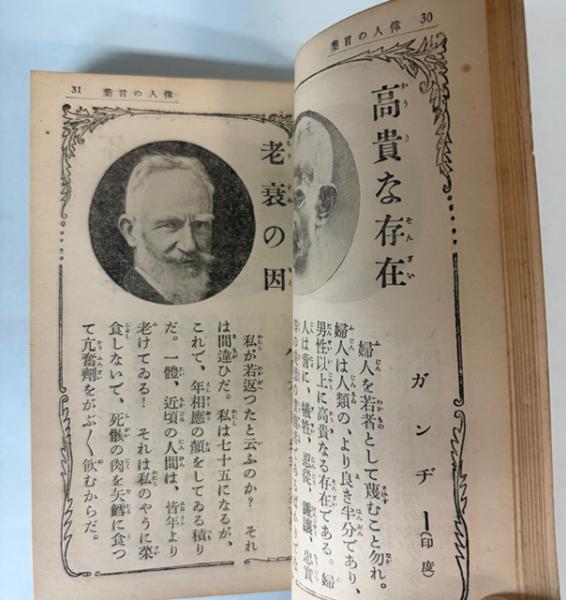 30　偉人の言葉
高貴な存在
ガンヂー(印度)
婦人を若者として蔑むこと勿れ。
婦人は人類の、より良き半分であり、
男性以上に高貴なる存在である。婦
人は皆に、犠牲、忍從、謙讓、忠實
31　偉人の言葉
老衰の因
私が若返つたと云ふのか？　それ
は間違ひだ。私は七十五になるが、
これで、年相應の顔をしてゐる積り
だ。一體、近頃の人間は、皆年より
老けてゐる！　それは私のやうに菜
食しないで、死骸の肉を矢鱈に食つ
て亢奮劑をがぶ〳〵飮むからだ。